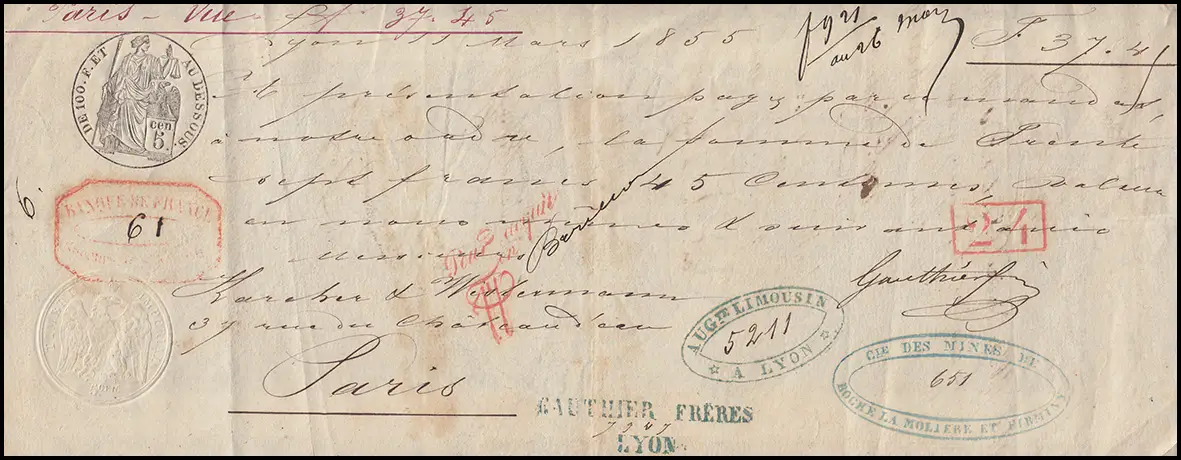 Paris - Vue - Pf. 37.45
Lyon 11 Mars 1855
au 26 mars
F. 37.45
DE 100. F. ET AU DESSOUS.
cen 5.
A présentation payez par ce mandat
à notre ordre, la somme de Trente
Sept francs 45 Centimes, Valeur
en nous mêmes & suivant avis
6.
BANQUE DE FRANCE
61
Pour acquit
24
Messieurs
Karcher & Westermann
37 rue du Château d'eau
Paris
Gauthier
AUGTE LIMOUSIN
5211
A LYON
CIE DES MINES DE
651
ROCHE LA MOLIERE ET FIRMINY
GAUTHIER FRÈRES
7247
LYON